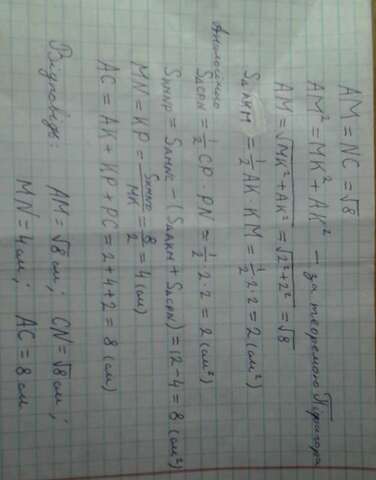 AM = NC = √8
AM² = MK² + AK² — за теоремою Піфагора
AM = √MK² + AK² = √2² + 2² = √8
S△AKM = 1/2 AK · KM = 1/2 2·2 = 2 (см²)
Аналогічно
S△CPN = 1/2 CP · PN = 1/2 · 2 · 2 = 2 (см²)
SMKNP = SAMNC − (S△AKM + S△CPN) = 12 − 4 = 8 (см²)
MN = KP = SMKNP/MK = 8/2 = 4 (см)
AC = AK + KP + PC = 2 + 4 + 2 = 8 (см)
Відповідь: AM = √8 см; CN = √8 см;
MN = 4 см; AC = 8 см